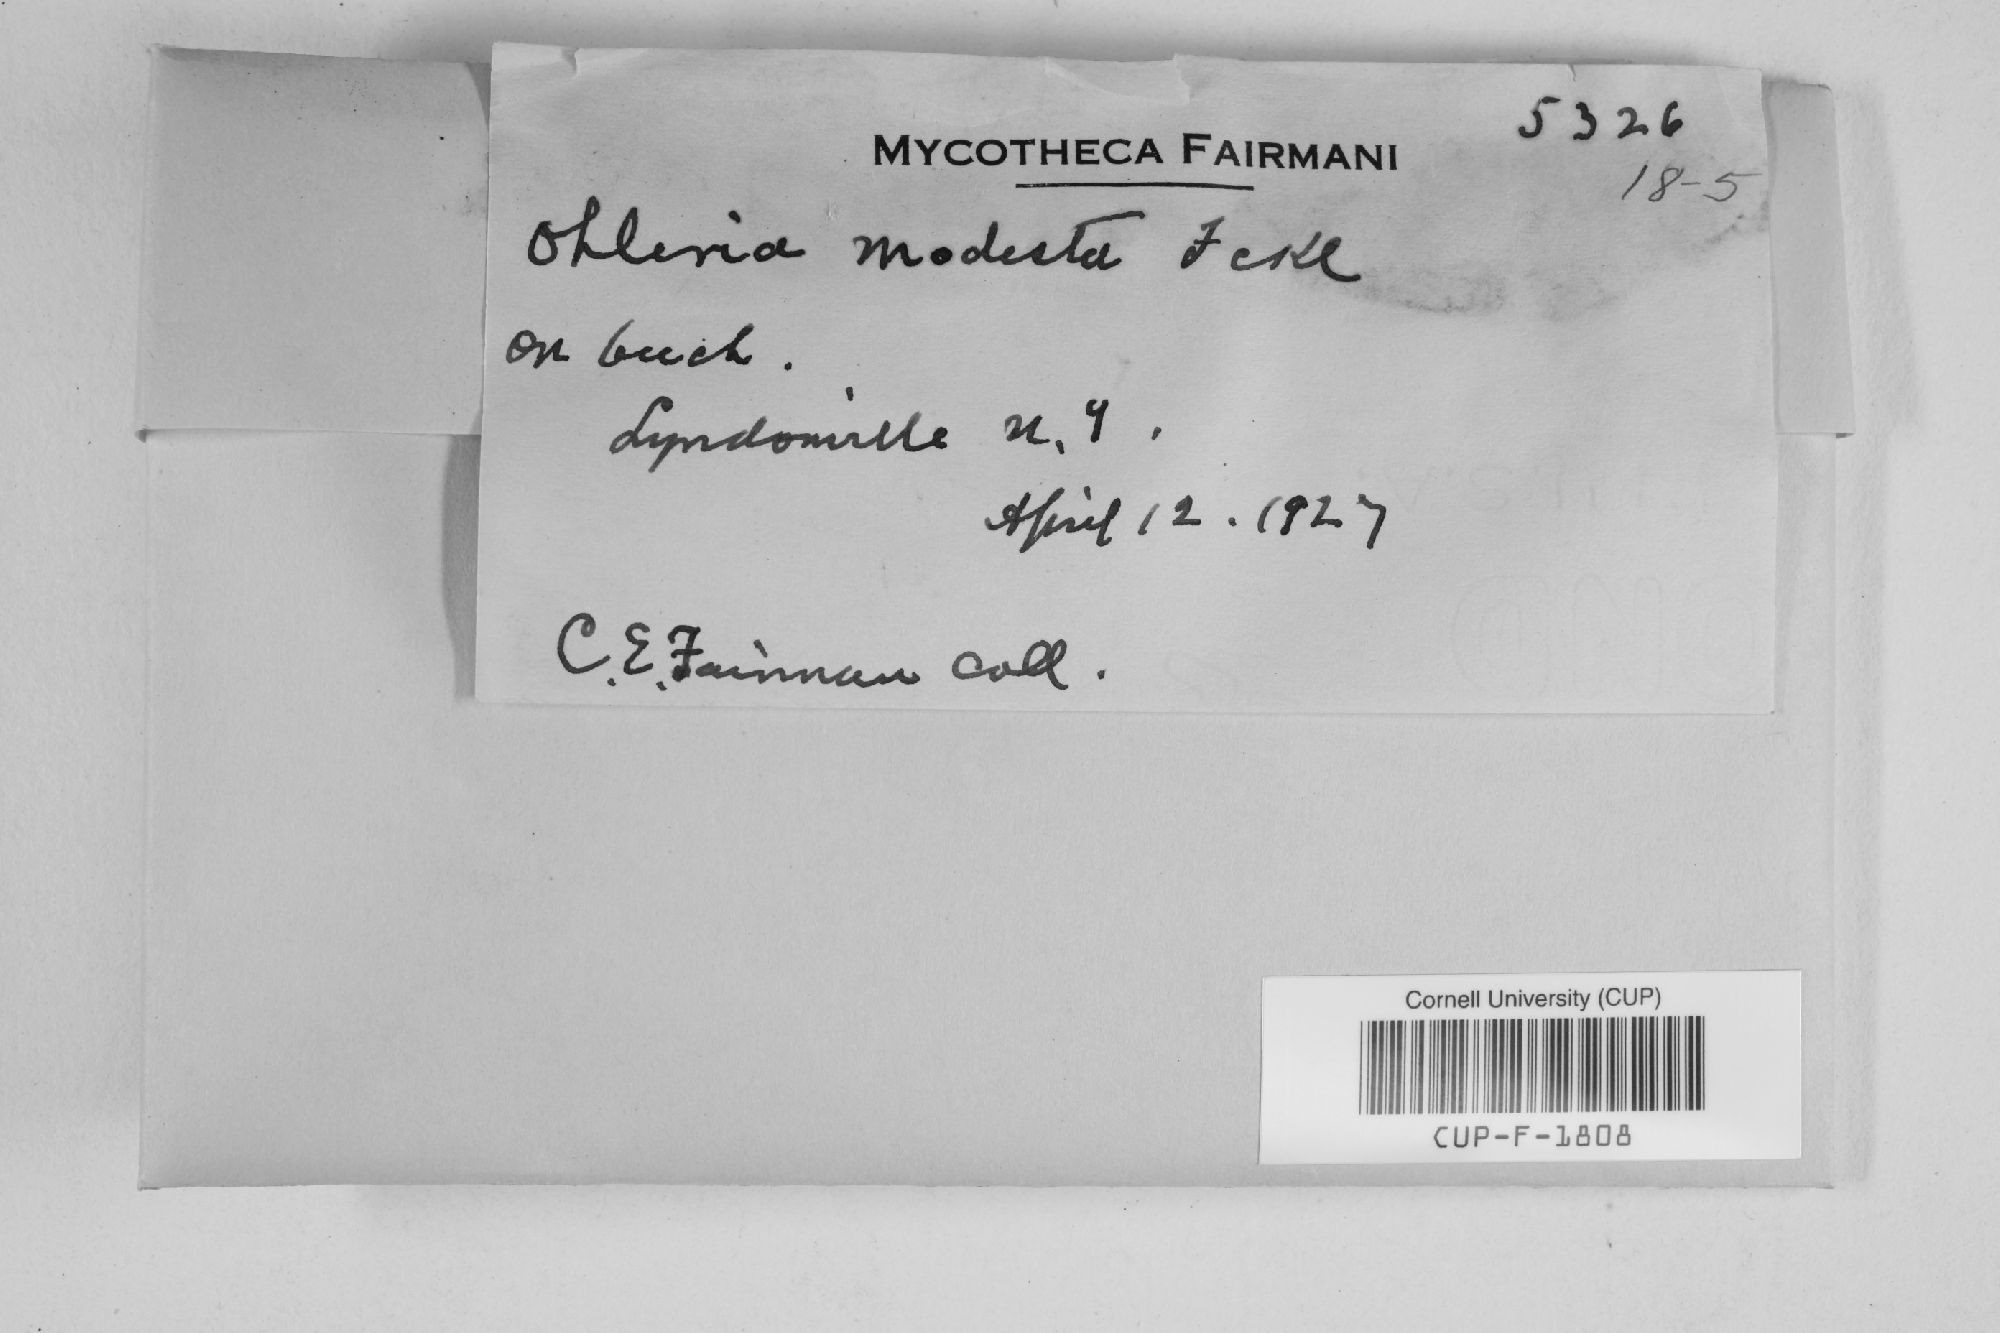 5326
MYCOTHECA FAIRMANI
18-5
Ohleria modesta Fckl
on beech.
Lyndonville N.Y.
April 12. 1927
C.E. Fairman coll.
Cornell University (CUP)
CUP-F-1808